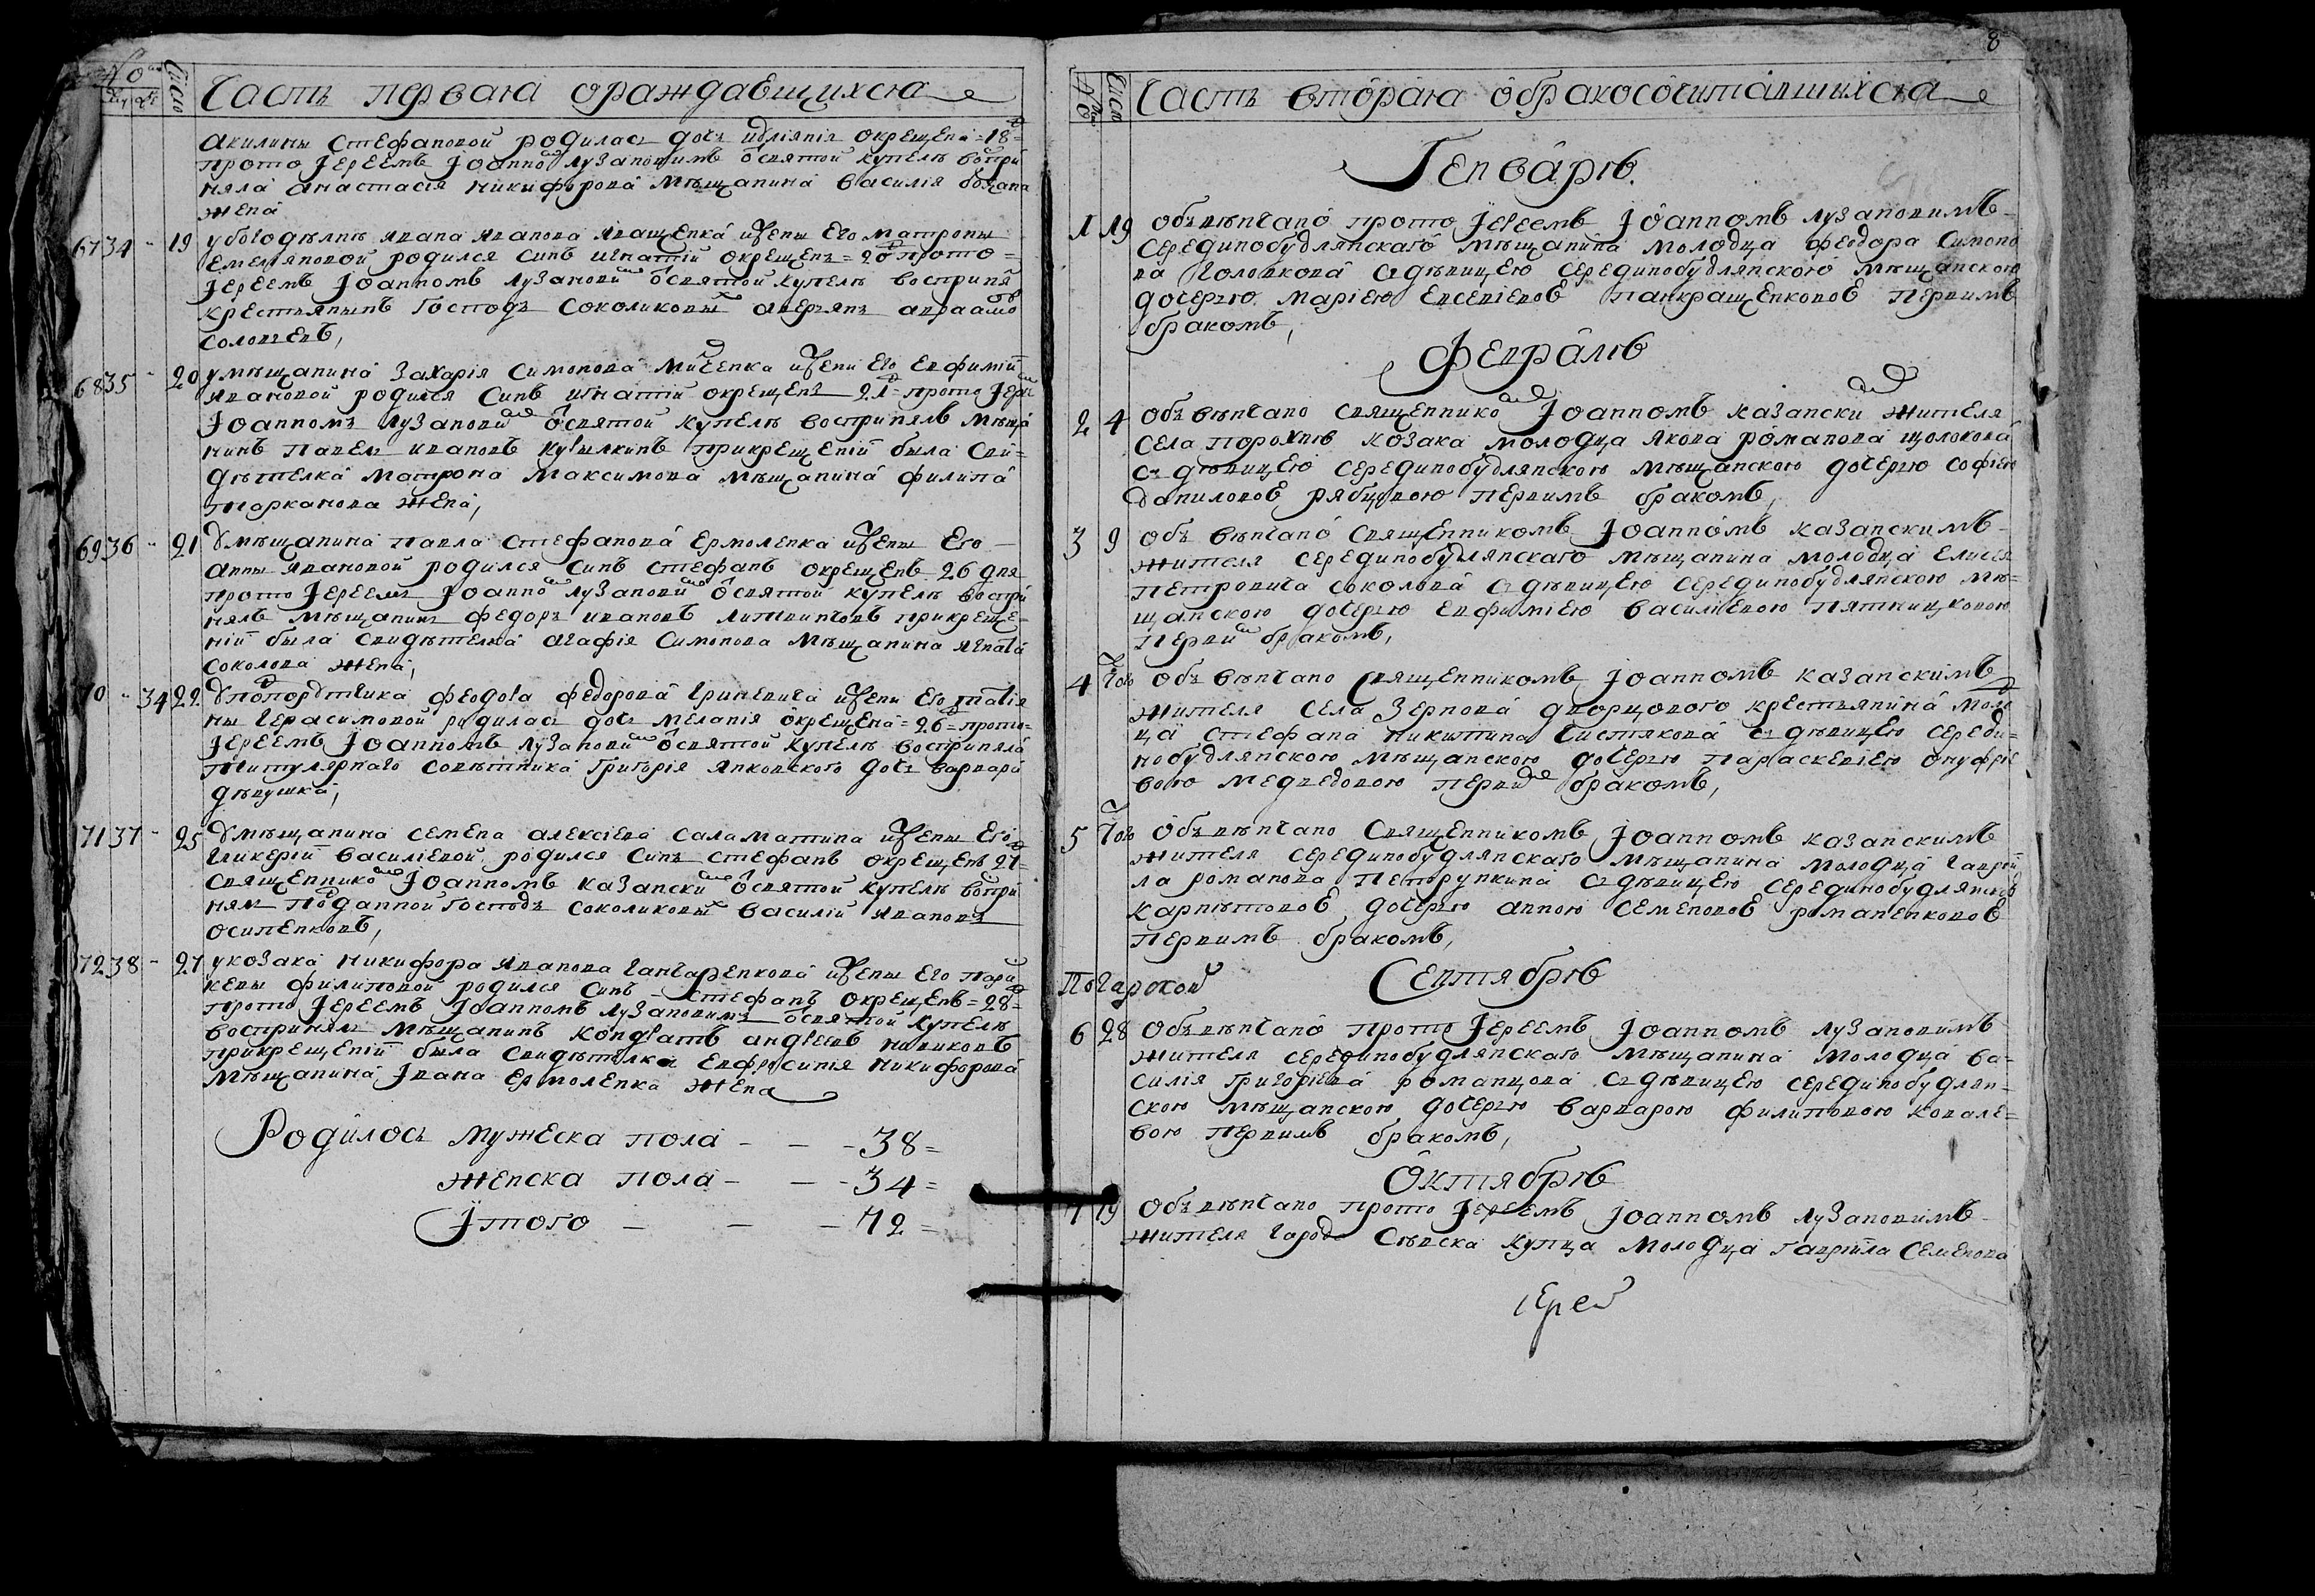 No Число Часть первая ораждавшихся
Акилины Стефановой родилась дочь иулиянія окрещена =18=
прото Іереемъ Іоанномъ Лузановимъ о святой купели воспри
няла Анастасія Никифорова мѣщанина Василія
жена
67 34 - 19 у богодѣлнѣ Ивана Иванова Иващенка и жены Его Матроны
Емеляновой родился Синъ Игнатій окрещенъ =20= прото=
Іереемъ Іоанномъ Лузановим о святой купели восприня
крестьянынъ Господъ Соколиковых Аверьянъ Авраамовъ
Соловчевъ,
68 35 - 20 у мѣщанина Захарія Симонова Миченка и жени Его Евфиміи
Ивановой родился Синъ Игнатій окрещенъ 21= прото Іерее
Іоанномъ Лузановим о святой купели воспринялъ мѣща
нинъ Павелъ Ивановъ прикрещеніи была Сви=
дѣтелка Матрона Максимова мѣщанина Филипа
Тарканова жена,
69 36 - 21 У мѣщанина Павла Стефанова Ермоленка и жены Его
Анны Ивановой родился Синъ Стефанъ окрещенъ 26 дня
прото Іереемъ Іоанном Лузановим о святой купели воспри
нялъ мѣщанинъ Федоръ Ивановъ Литвинчовъ прикреще=
ніи была свидѣтелка Агафія Симонова мѣщанина Игната
Соколова жена,
70 - 34 22 У Феодога Федорова Гриневича и жени Его Игнатія
ны Герасимовой родилась дочь Меланія окрещена =26= прото=
Іереемъ Іоанномъ Лузановим о святой купели восприняла
Титулярнаго совѣтника Григорія Янковского дочь Варвара
дѣвушка,
71 37 - 25 У мѣщанина Семена Алексіева Саламатина и жены Его
Гликеріи Василіевой родился Синъ Стефанъ окрещенъ 27=
Священником Іоанномъ Казанским о святой купели воспри
нялъ подданной Господъ Соколиковых Василій Ивановъ
Осипенковъ,
72 38 - 27 у козака Никифора Иванова Ганчаренкова и жены Его Пара
кевы Филиповой родился Синъ - Стефанъ окрещенъ =28=
прото Іереемъ Іоанномъ Лузановимъ о святой купели
воспринялъ мѣщанинъ Кондратъ Андреевъ Новиковъ
прикрещеніи была Свидѣтелка Евфросинія Никифорова
мѣщанина Івана Ермоленка жена
Родилось мужеска пола - - - 38=
женска пола - - - 34=
Ітого - - - 72=
8
No Число Часть вторая обракосочитавшихся
Генварь.
1 19 Объвѣнчано прото Іереемъ Іоанномъ Лузановимъ
Серединобудлянскаго мѣщанина молодца Феодора Симоно
ва Головкова съ дѣвицею Серединобудлянскою мѣщанскою
дочерью Маріею Евсевіевою Панкращенковою первимъ
бракомъ,
Февраль
2 4 Объвѣнчано священником Іоанномъ Казански жителя
села Порохнь козака молодца Якова Романова Щолокова
съ дѣвицею Серединобудлянскою мѣщанскою дочерью Софією
Даниловою Рябцовою первимъ бракомъ,
3 9 Объ вѣнчано Священникомъ Іоанномъ Казанскимъ
жителя Серединобудлянскаго мѣщанина молодца Елисея
Петровича Соколова съ дѣвицею Серединобудлянскою мѣ=
щанскою дочерью Евфиміею Василіевою Пятницковою
Перви бракомъ,
4 Тож Объ вѣнчано Священникомъ Іоанномъ Казанскимъ
жителя села Зернова дворцового крестьянина молод
ца Стефана Никитина Чистякова съ дѣвицею Середи=
нобудлянскою мѣщанскою дочерью Параскевіею Онуфріе
вою Медведовою перви бракомъ,
5 Тож Объвѣнчано Священникомъ Іоанномъ Казанскимъ
жителя Серединобудлянскаго мѣщанина молодца Гаврій
ла Романова Петрункина съ дѣвицею Серединобудлянско
дочерью Анною Семеновою Романенковою
первимъ бракомъ,
Сентябрь
6 28 Объвѣнчано прото Іереемъ Іоанномъ Лузановимъ
жителя Серединобудлянскаго мѣщанина молодца Ва=
силія Григоріева Романцова съ дѣвицею Серединобудлян=
скою мѣщанскою дочерью Варварою Филиповою Ковале=
вою первимъ бракомъ,
Октябрь
7 19 Объвѣнчано прото Іереемъ Іоанномъ Лузановимъ
жителя города Сѣвска купца молодца Гавріила Семенова
Іерей